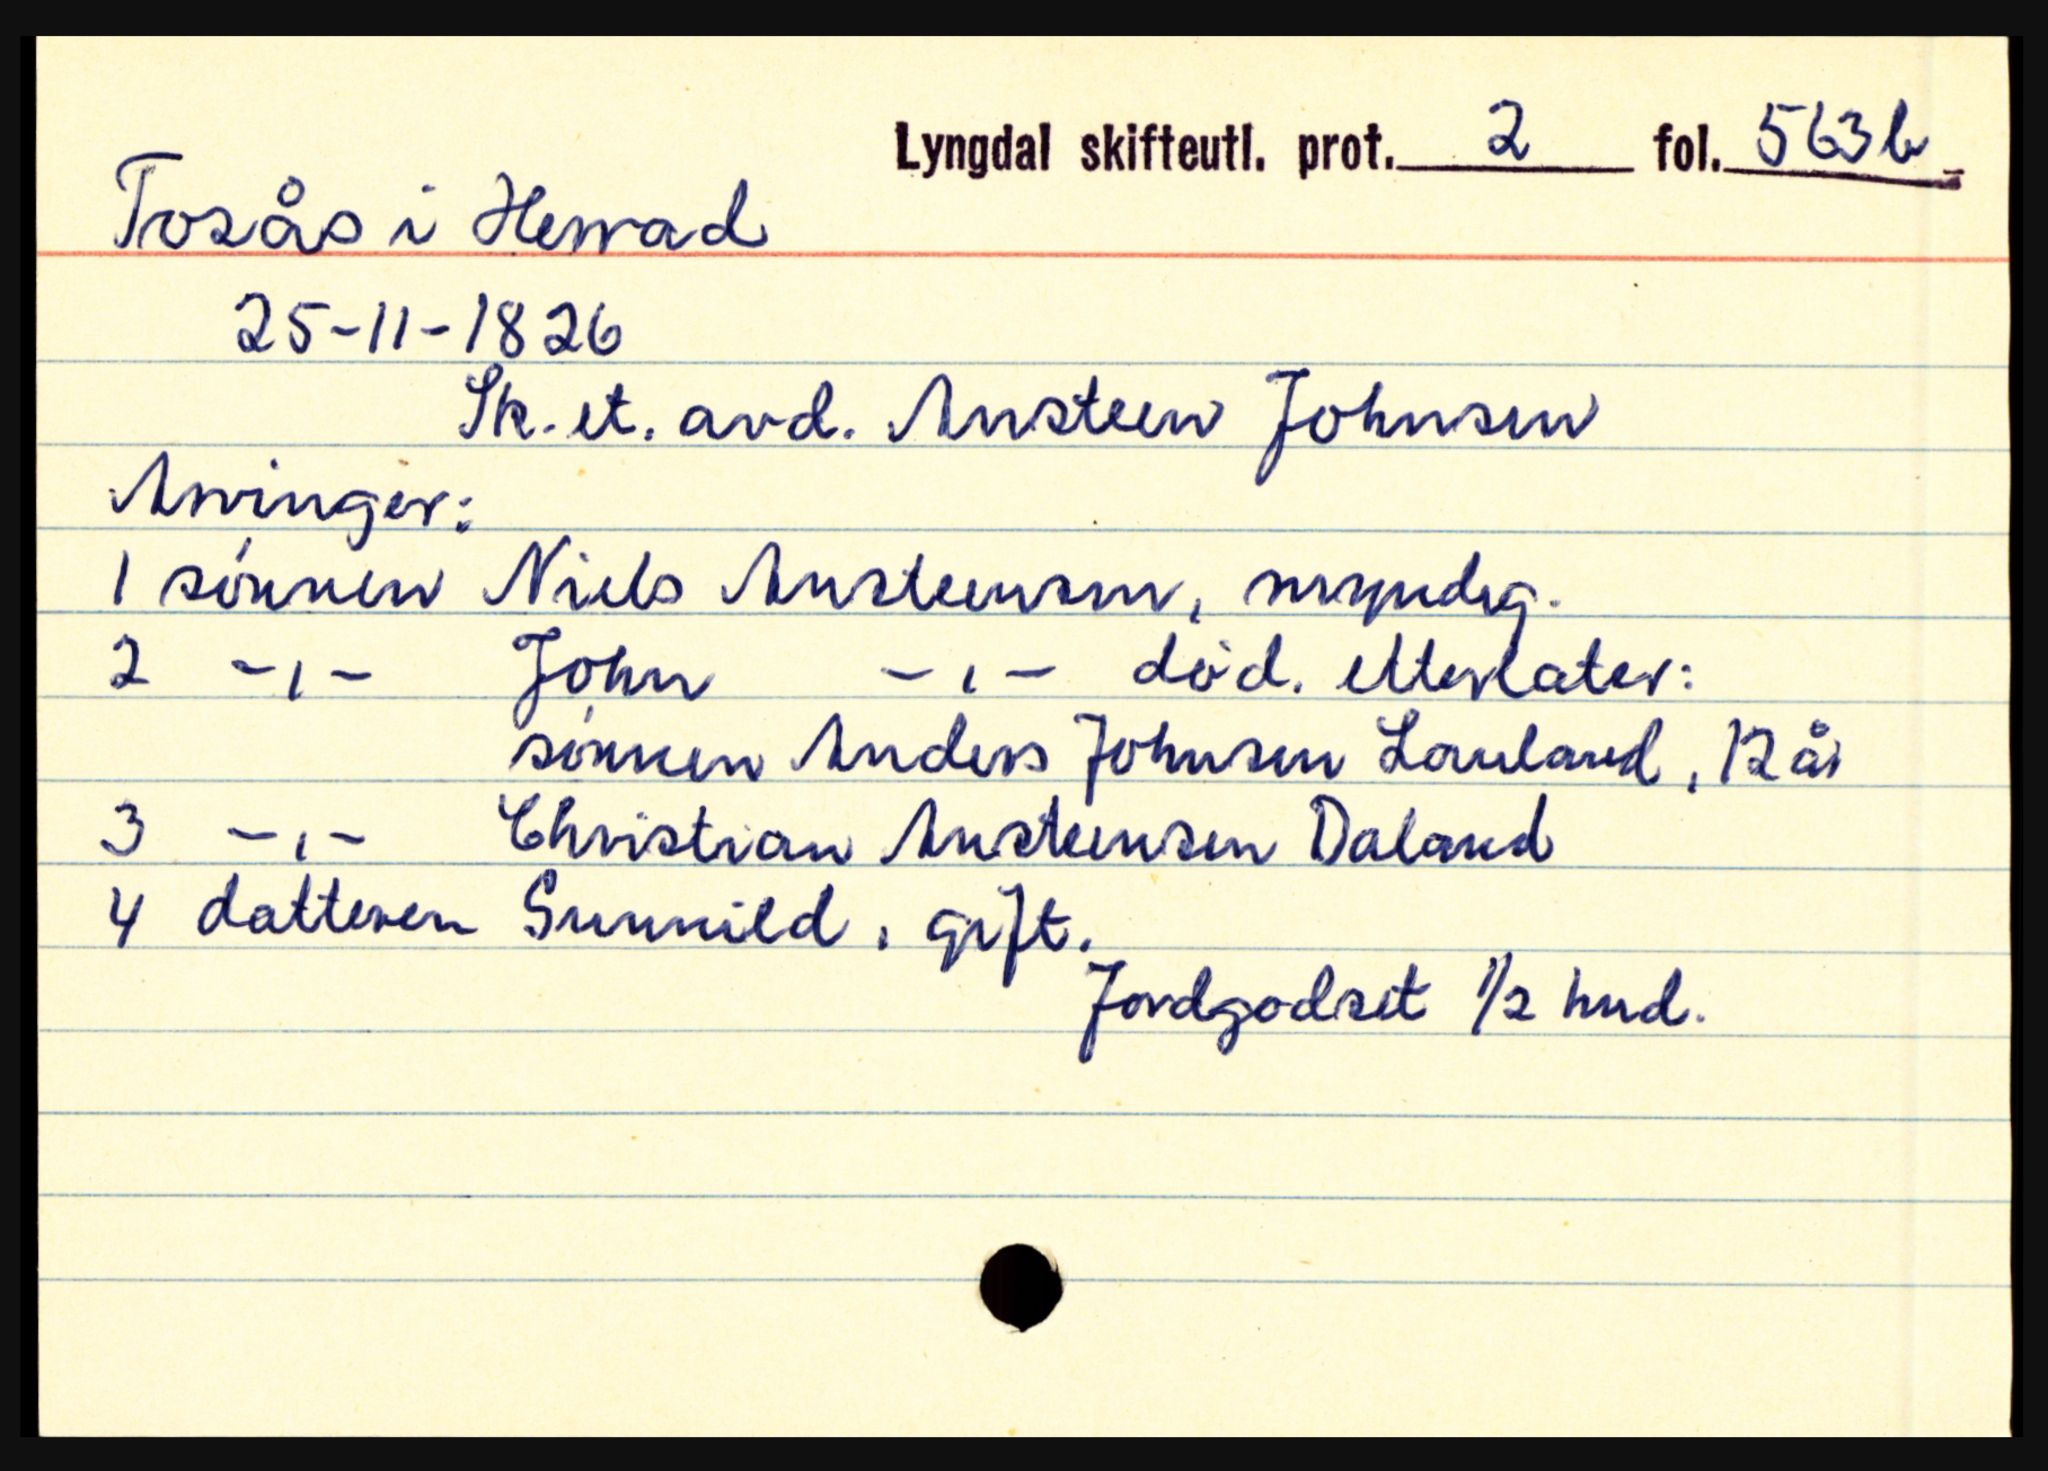 Lyngdal skifteutl. prot. 2 fol. 563b
Tosås i Herrad
25-11-1826
Sk. et. avd. Ansteen Johnsen
Arvinger:
1 sønnen Niels Ansteensen, myndig.
2 -,- John -,- død. etterlater:
sønnen Anders Johnsen Lauland, 12 år
3 -,- Christian Ansteensen Daland
4 datteren Gunnild, gift.
Jordgodset 1/2 hud.